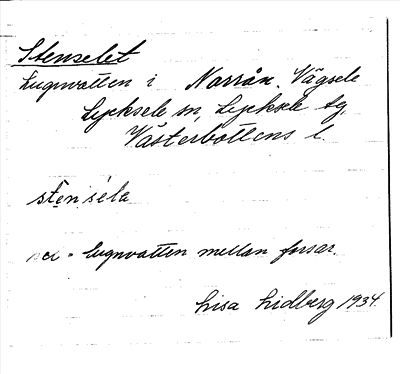 Stenselet
Lugnvatten i Norrån. Vägsele
Lycksele sn, Lycksele tg,
Västerbottens l.
sten sela
sel = lugnvatten mellan forsar.
Lisa Lidberg 1934.